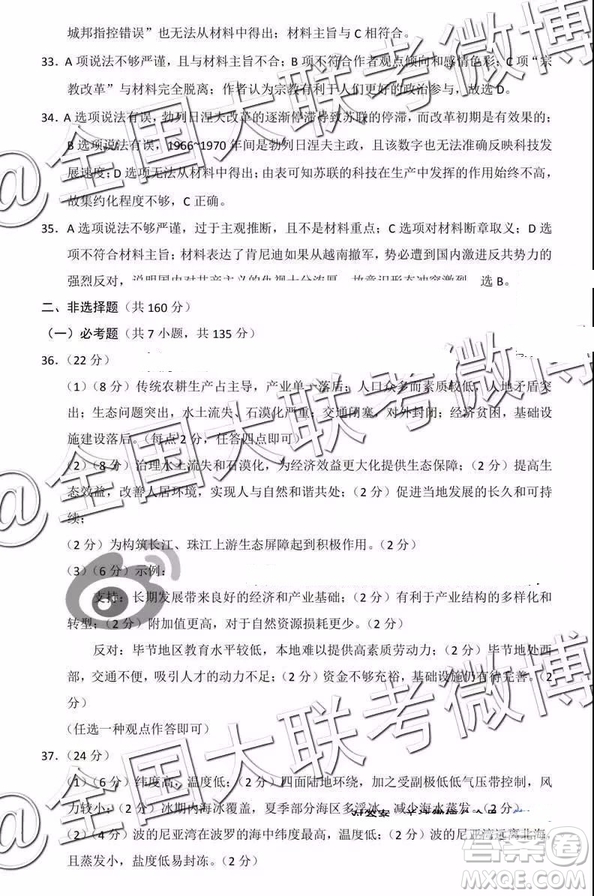 城邦指控错误”也无法从材料中得出；材料主旨与 C 相符合。
33. A 项说法不够严谨，且与材料主旨不一；B 项不符合作者观点倾向和感情色彩；C 项“宗
教改革”与材料完全脱离；作者认为宗教有利于人们更好的政治参与，故选 D。
34. A 选项说法有误，勃列日涅夫改革的逐渐停滞导致苏联的停滞，而改革初期是有成果的；
B 选项说法有误，1966~1970 年间是勃列日涅夫主政，且该数字也无法正确反映科技发
展速度；D 选项无法从材料中得出；由表可知苏联的科技在生产中发挥的作用越来越大，
故集约化程度不断变大，C 正确。
35. A 选项说法不够严谨，过于主观推断，且不是材料重点；C 选项对材料断章取义；D 选
项不符合材料主旨；材料表达了肯尼迪如果从越南撤军，势必遭到国内激进反共势力的
强烈反对，说明国内对共产主义的仇视十分浓厚，故意识形态冲突激烈 选 B。
二、非选择题（共 160 分）
（一）必考题（共 7 小题，共 135 分）
36.（22 分）
（1）（8 分）传统农耕生产占主导，产业单一落后；人口众多而素质较低，人地矛盾突
出；生态问题突出，水土流失、石漠化严重；交通闭塞，对外封闭；经济贫困，基础设
施建设落后。（每点 2 分，任答四点即可）
（2）（8 分）治理水土流失和石漠化，为经济效益更大化提供生态保障；（2 分）提高生
态效益，改善人居环境，实现人与自然和谐共处；（2 分）促进自身发展的长久和可持
续；
（2 分）为构筑长江、珠江上游生态屏障起到积极作用。（2 分）
（3）（6 分）示例：
支持：长期发展带来良好的经济和产业基础；（2 分）有利于产业结构的多样化和
转型；（2 分）附加值更高，对于自然资源损耗更少。（2 分）
反对：毕节地区教育水平较低，不具有高素质人才优势；（2 分）毕节地处我国西
部，交通不便，吸引人才的动力不足；（2 分）资金不够充裕，基础设施仍有待完善。（2
分）
（任选一种观点作答即可）
37.（24 分）
（1）（6 分）纬度高，温度低；（2 分）四面陆地环绕，加之受副极低气压带控制，风
力较小；（2 分）冰期内海冰覆盖，夏季部分海区多浮冰，减少海水蒸发。（2 分）
（2）（4 分）波的尼亚湾在波罗的海中纬度最高，温度低；（2 分）波的尼亚湾远离北海，
且蒸发小，盐度低易封冻。（2 分）
@全国大联考微博
@全国大联考微博
@全国大联考微博
答案圈
MXQE.COM